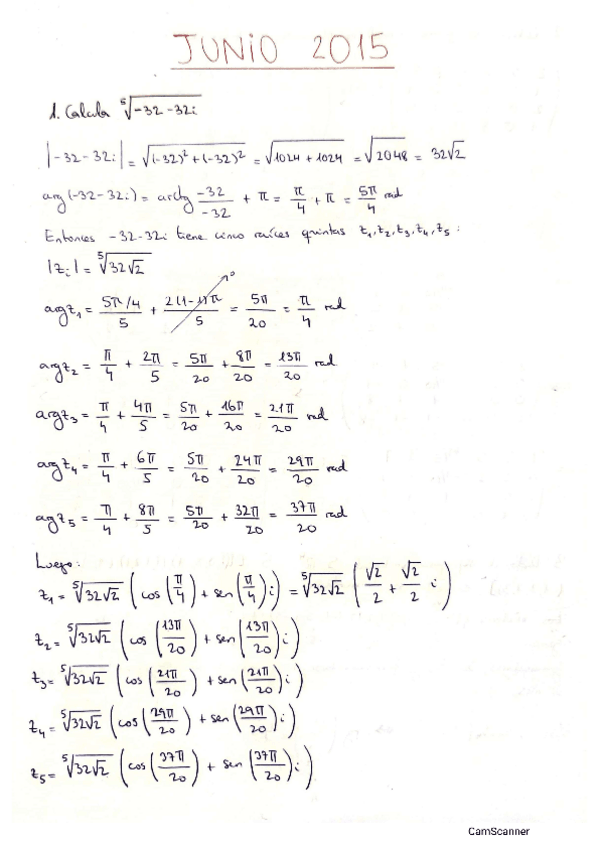 JUNIO 2015
1. Calcula ⁵√(-32-32i)
|-32-32i| = √((-32)²+(-32)²) = √(1024+1024) = √2048 = 32√2
arg(-32-32i) = arctg (-32/-32) + π = π/4 + π = 5π/4 rad
Entonces -32-32i tiene cinco raíces quintas z₁, z₂, z₃, z₄, z₅:
|zᵢ| = ⁵√(32√2)
arg z₁ = (5π/4)/5 + 2(1-1)π/5 = 5π/20 = π/4 rad
arg z₂ = π/4 + 2π/5 = 5π/20 + 8π/20 = 13π/20 rad
arg z₃ = π/4 + 4π/5 = 5π/20 + 16π/20 = 21π/20 rad
arg z₄ = π/4 + 6π/5 = 5π/20 + 24π/20 = 29π/20 rad
arg z₅ = π/4 + 8π/5 = 5π/20 + 32π/20 = 37π/20 rad
Luego:
z₁ = ⁵√(32√2) (cos(π/4) + sen(π/4)i) = ⁵√(32√2) (√2/2 + √2/2 i)
z₂ = ⁵√(32√2) (cos(13π/20) + sen(13π/20)i)
z₃ = ⁵√(32√2) (cos(21π/20) + sen(21π/20)i)
z₄ = ⁵√(32√2) (cos(29π/20) + sen(29π/20)i)
z₅ = ⁵√(32√2) (cos(37π/20) + sen(37π/20)i)
CamScanner